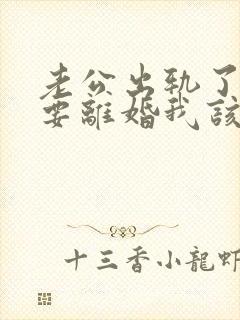 老公出轨了
要離婚我該
十三香小龍蝦